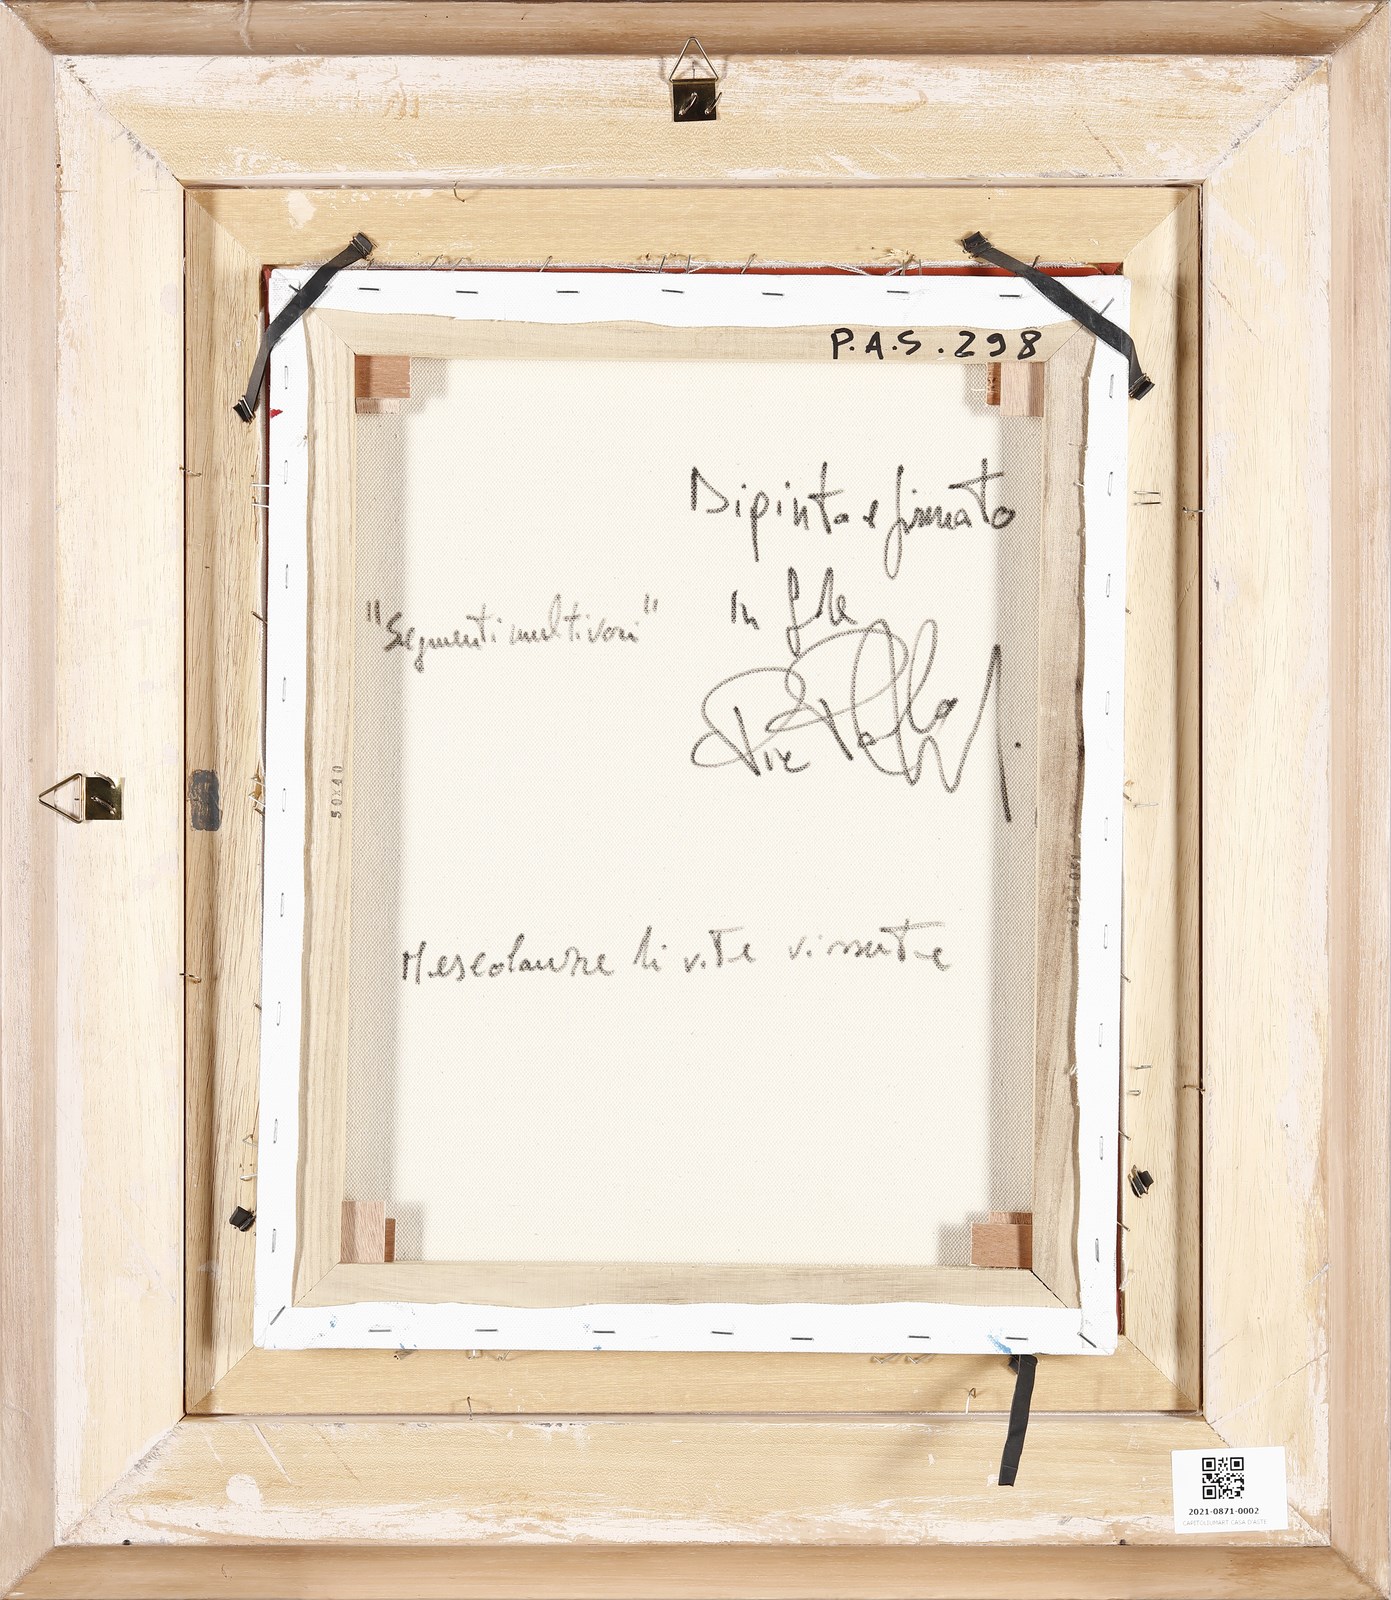 P.A.S. 298
Dipinto e firmato
in
"Segmenti multivori"
50x40
Mescolanze di vite vissute
2021-0871-0002
CAPITOLIUMART CASA D'ASTE